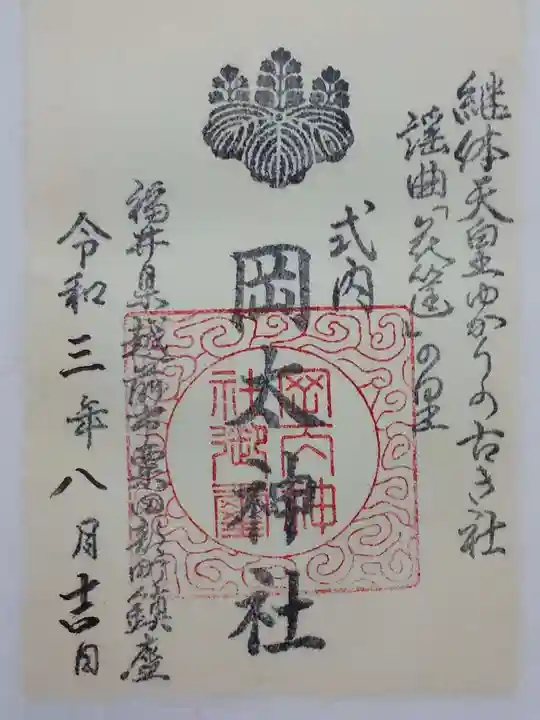 継体天皇ゆかりの古き社
謡曲「花筐」の里
式内
岡太神社
岡太神
社御璽
福井県越前市粟田部町鎮座
令和三年八月吉日